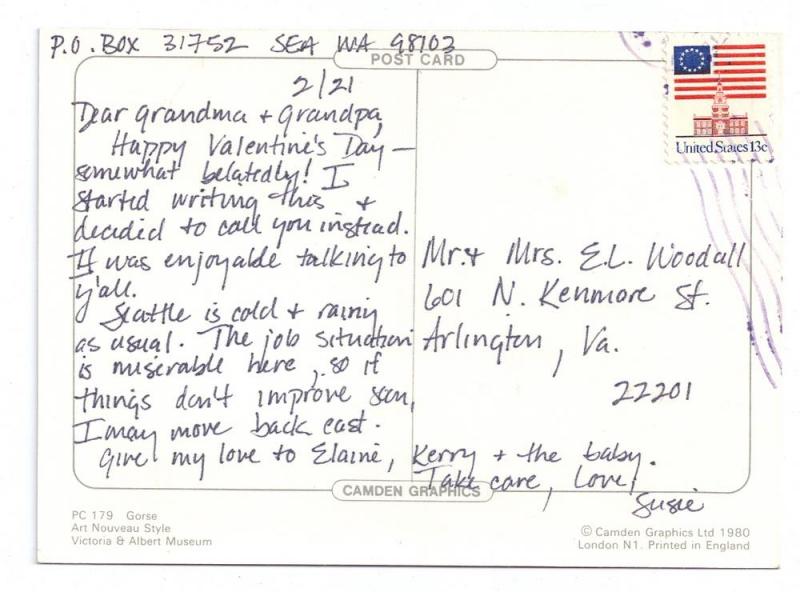 P.O. BOX 31752 SEA WA 98103
POST CARD
2/21
Dear Grandma + Grandpa,
Happy Valentine's Day —
somewhat belatedly! I
started writing this +
decided to call you instead.
It was enjoyable talking to
y'all.
Seattle is cold + rainy
as usual. The job situation
is miserable here, so if
things don't improve soon,
I may move back east.
Give my love to Elaine, Kerry + the baby.
Take care, Love,
Susie
United States 13c
Mr. + Mrs. E.L. Woodall
601 N. Kenmore St.
Arlington, Va.
22201
CAMDEN GRAPHICS
PC 179 Gorse
Art Nouveau Style
Victoria & Albert Museum
© Camden Graphics Ltd 1980
London N1. Printed in England